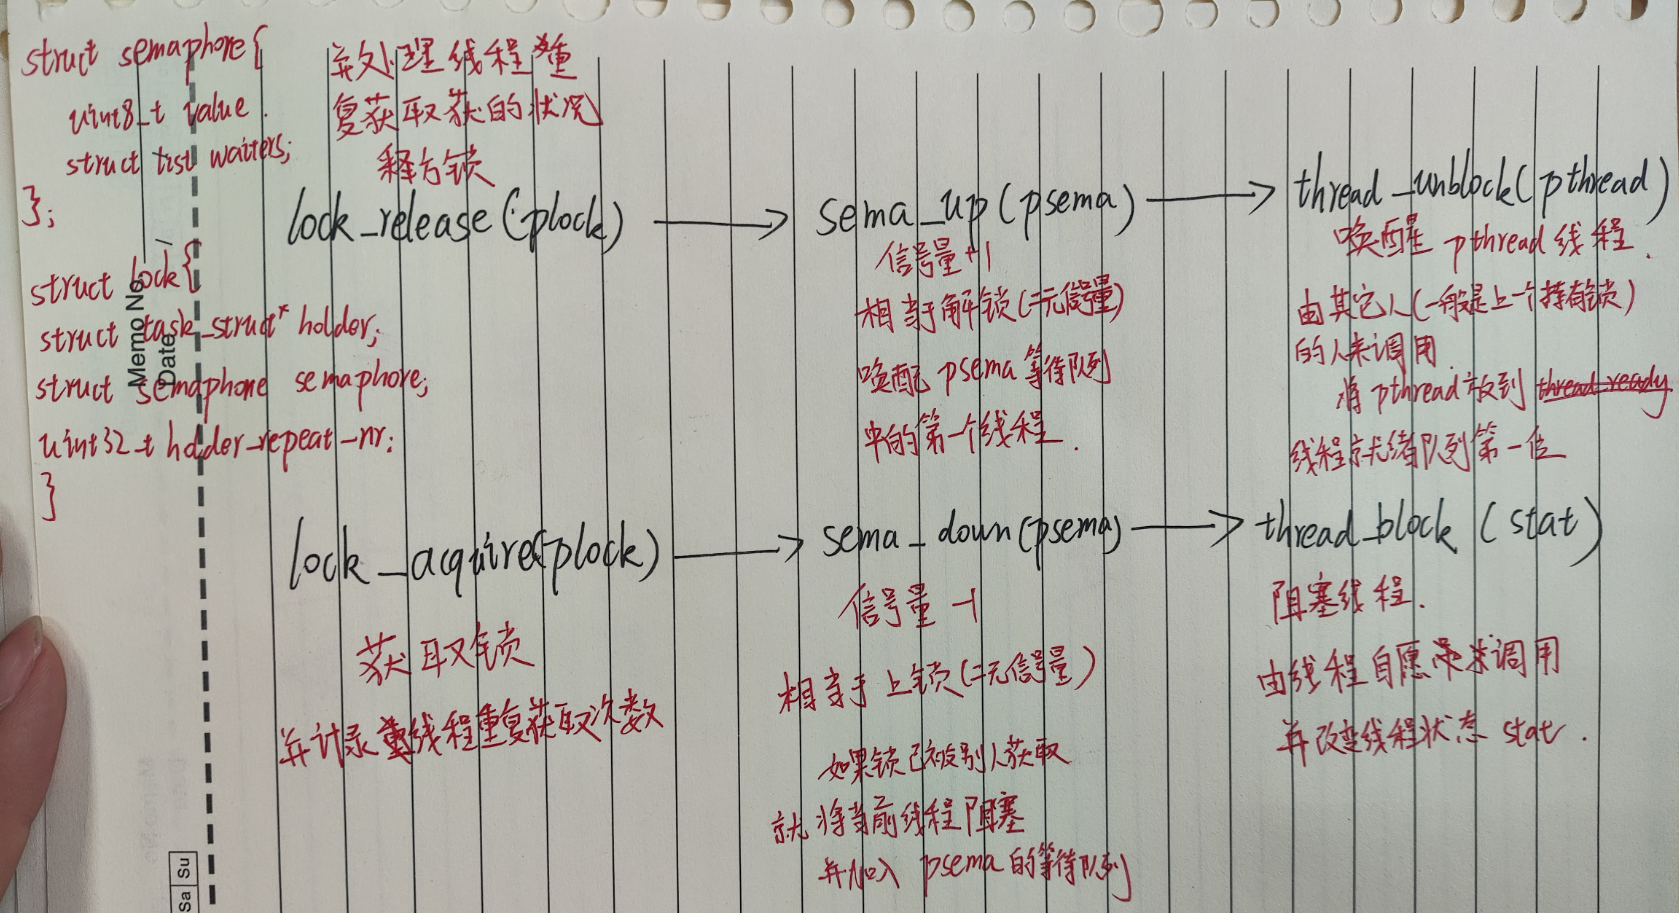 struct semaphore{
uint8_t value.
struct list waiters;
};
struct lock{
struct task_struct* holder;
struct semaphone semaphore;
uint32_t holder_repeat_nr:
}
Memo No.
Date
并处理线程重
复获取获的状况
释方锁
lock_release(plock)
sema_up(psema)
信号量+1
相当于解锁(二元信号量)
唤醒psema等待队列
中的第一个线程.
thread_unblock(pthread)
唤醒 pthread 线程.
由其它人(一般是上一个持有锁)
的人来调用.
将 pthread 放到 thread_ready
线程就绪队列第一位
lock_acquire(plock)
获取锁
并记录线程重复获取次数
sema_down(psema)
信号量 -1
相当于上锁(二元信号量)
如果锁已被别人获取
就将当前线程阻塞
并加入 psema的等待队列
thread_block (stat)
阻塞线程.
由线程自愿来调用
并改变线程状态 stat.
Su
Sa